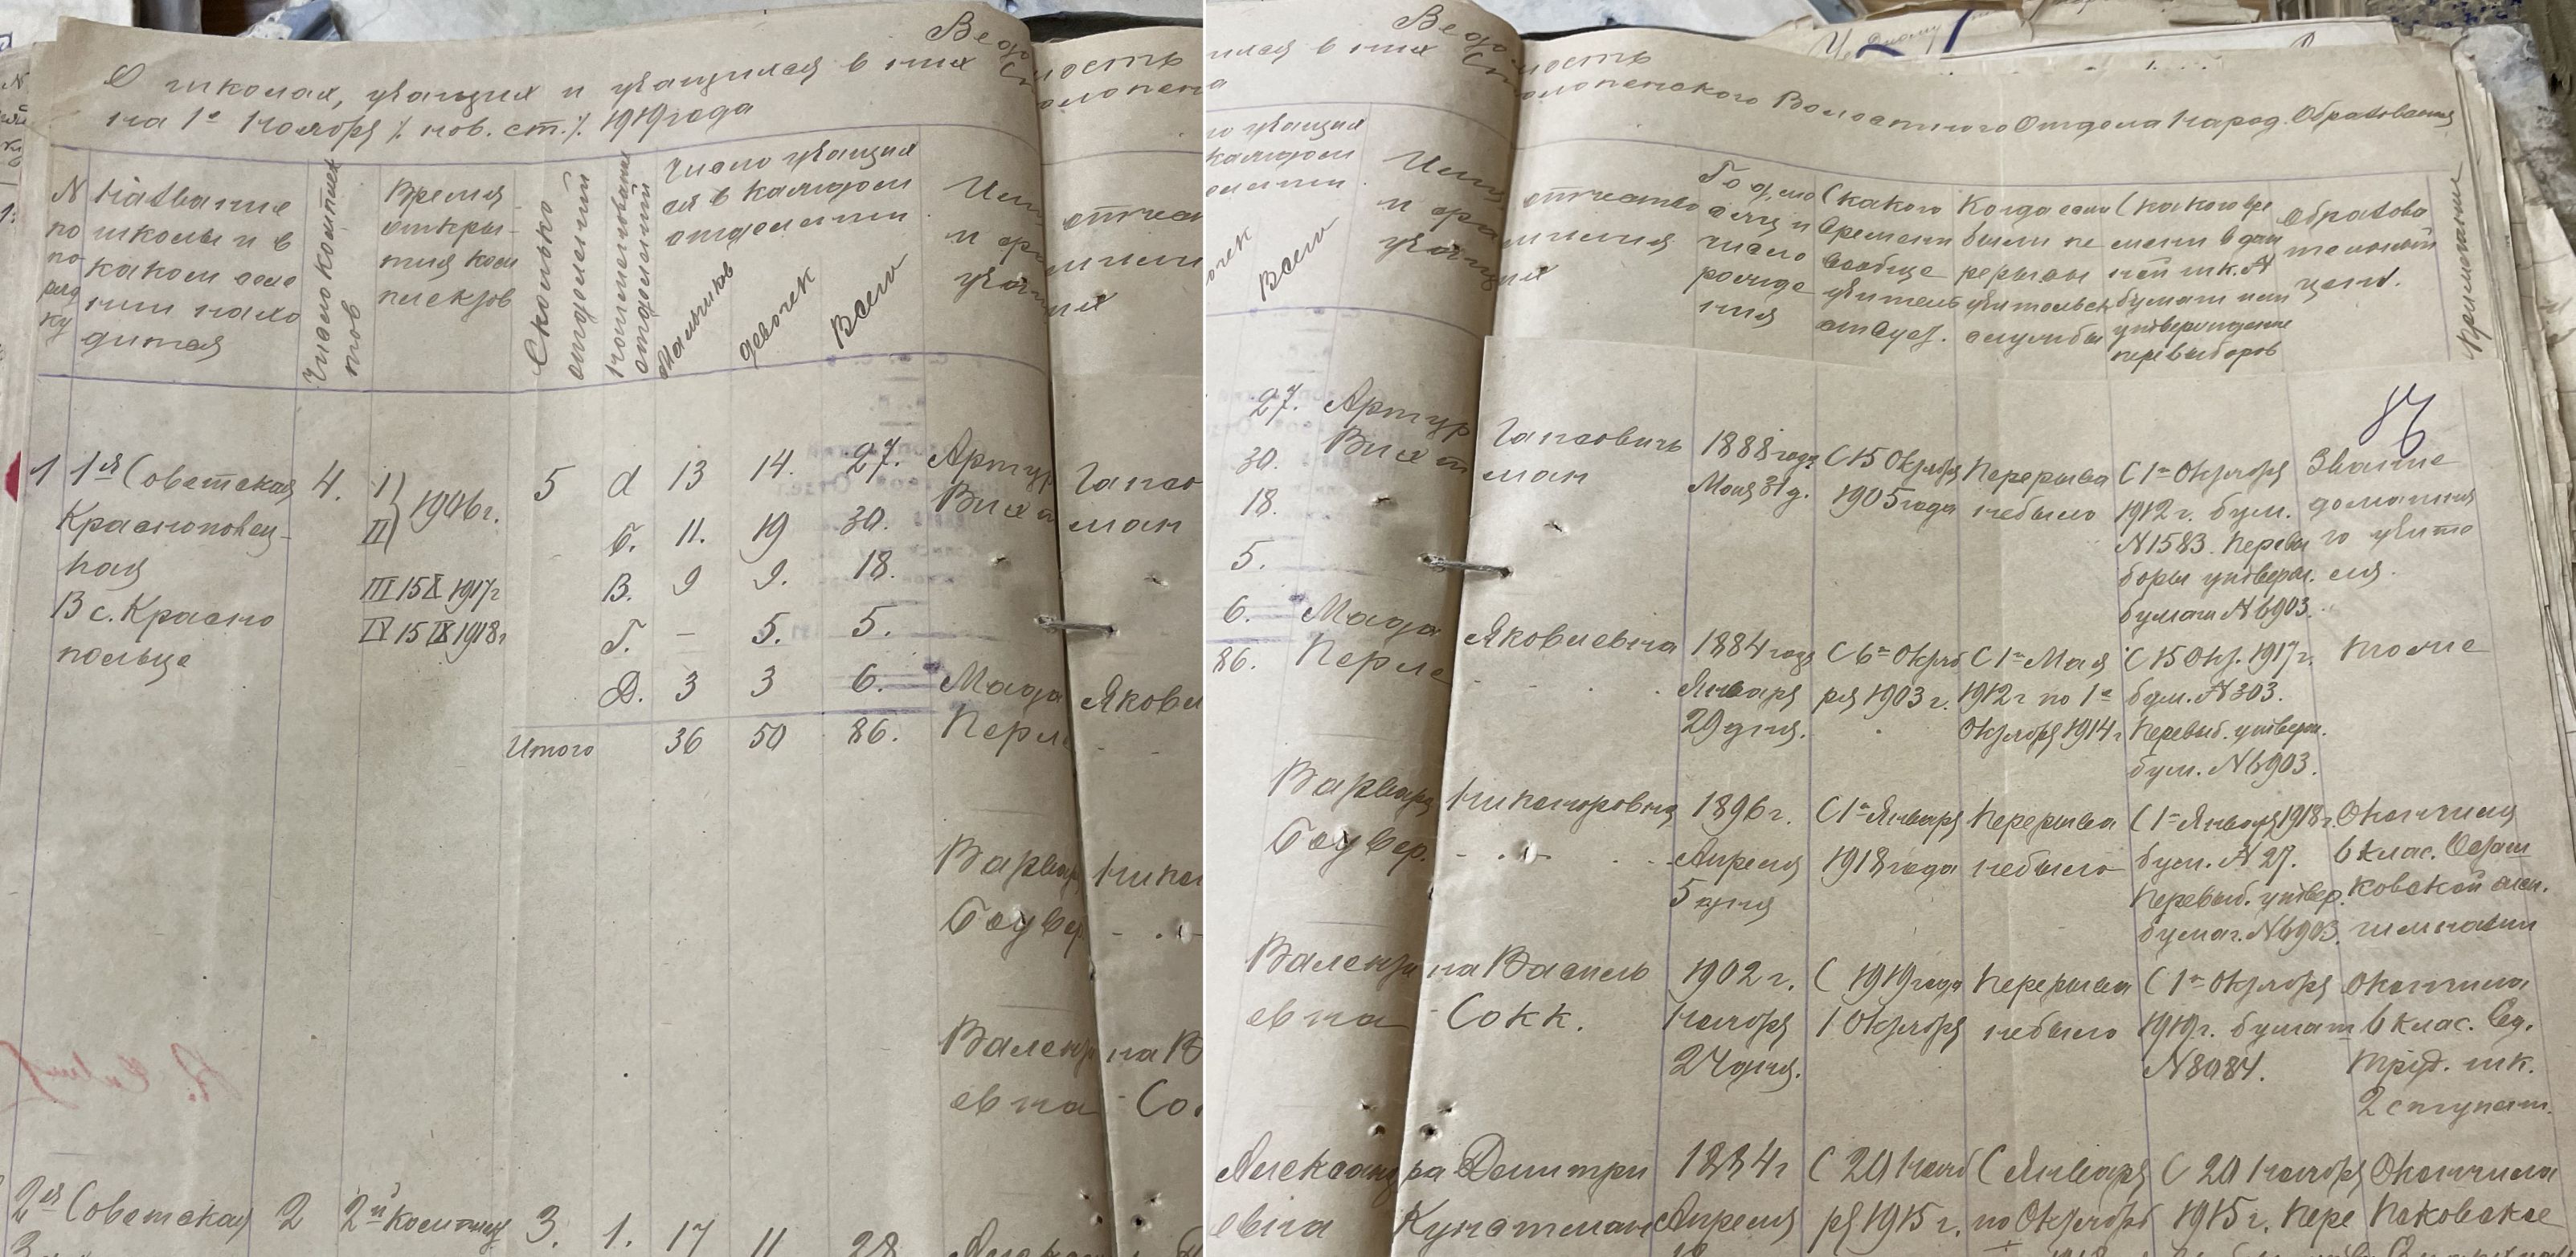 Ведо
О школах, учащих и учащихся в них
на 1е Ноября /. нов. ст./. 1919 года
N по порядку
Название школы и в каком селении находится
Число комплектов
Время открытия комплектов
Сколько отделений
Наименование отделений
Число учащихся в каждом отделении
Мальчиков
девочек
Всего
1
1ая Советская
Краснополец-
кая
В с. Красно
польце
4.
I)
II)
1906 г.
III 15 X 1917 г
IV 15 IX 1918 г
5
А 13 14. 27.
Б. 11. 19 30.
В. 9 9. 18.
Г. - 5. 5.
Д. 3 3 6.
Итого 36 50 86.
Артур
Яковл
Варвар
Боувер.
Вален
евна
2ая Советская 2 2й комплек 3. 1. 17 11 28
Ведо
мость
Волостного Отдела Народ. Образования
учащихся
каждом
Всего
Имя отчество
и фамилия
учащих
Год, месяц и число рождения
С какого времени вообще учительствует.
Когда если были перерывы учительск службы
С какого времени в данной шк. N бумаги или утверждение перевыборов
Образовательный ценз.
Примечание
87
27.
30.
18.
5.
6.
86.
Артур Гансович
1888 года
Мая 31 д.
С 15 Октября
1905 года
Перерыва
небыло
С 1го Октября
1912 г. бум.
N 1583. Перевы
боры утверж.
бумага N 6903.
Звание
домашня
го учите
ля.
Яковлевна
1884 года
Января
29 дня.
С 6го Октяб
ря 1903 г.
С 1го Мая
1912 г по 1е
Октября 1914 г
С 15 Окт. 1917 г.
бум. N 303.
Перевыб. утверж.
бум. N 6903.
тоже
Варвара Никаноровна
Боувер.
1896 г.
Апреля
5 дня
С 1го Января
1918 года
Перерыва
небыло
С 1го Января 1918 г.
бум. N 27.
Перевыб. утвер.
бумаг. N 6903.
Окончила
6 клас.
жен.
гимназии
Валентина Василь
евна Сокк.
1902 г.
Ноября
24 дня.
С 1919 года
1 Октября
Перерыва
небыло
С 1го Октября
1919 г. бумаг
N 8084.
Окончила
6 клас. Ед.
Труд. шк.
2 ступени.
Александра Дмитри
евна
1884 г
Апреля
С 20 Нояб
ря 1915 г.
С Января
по Октябрь
С 20 Ноября
1915 г. Пере
Окончила
Псковское